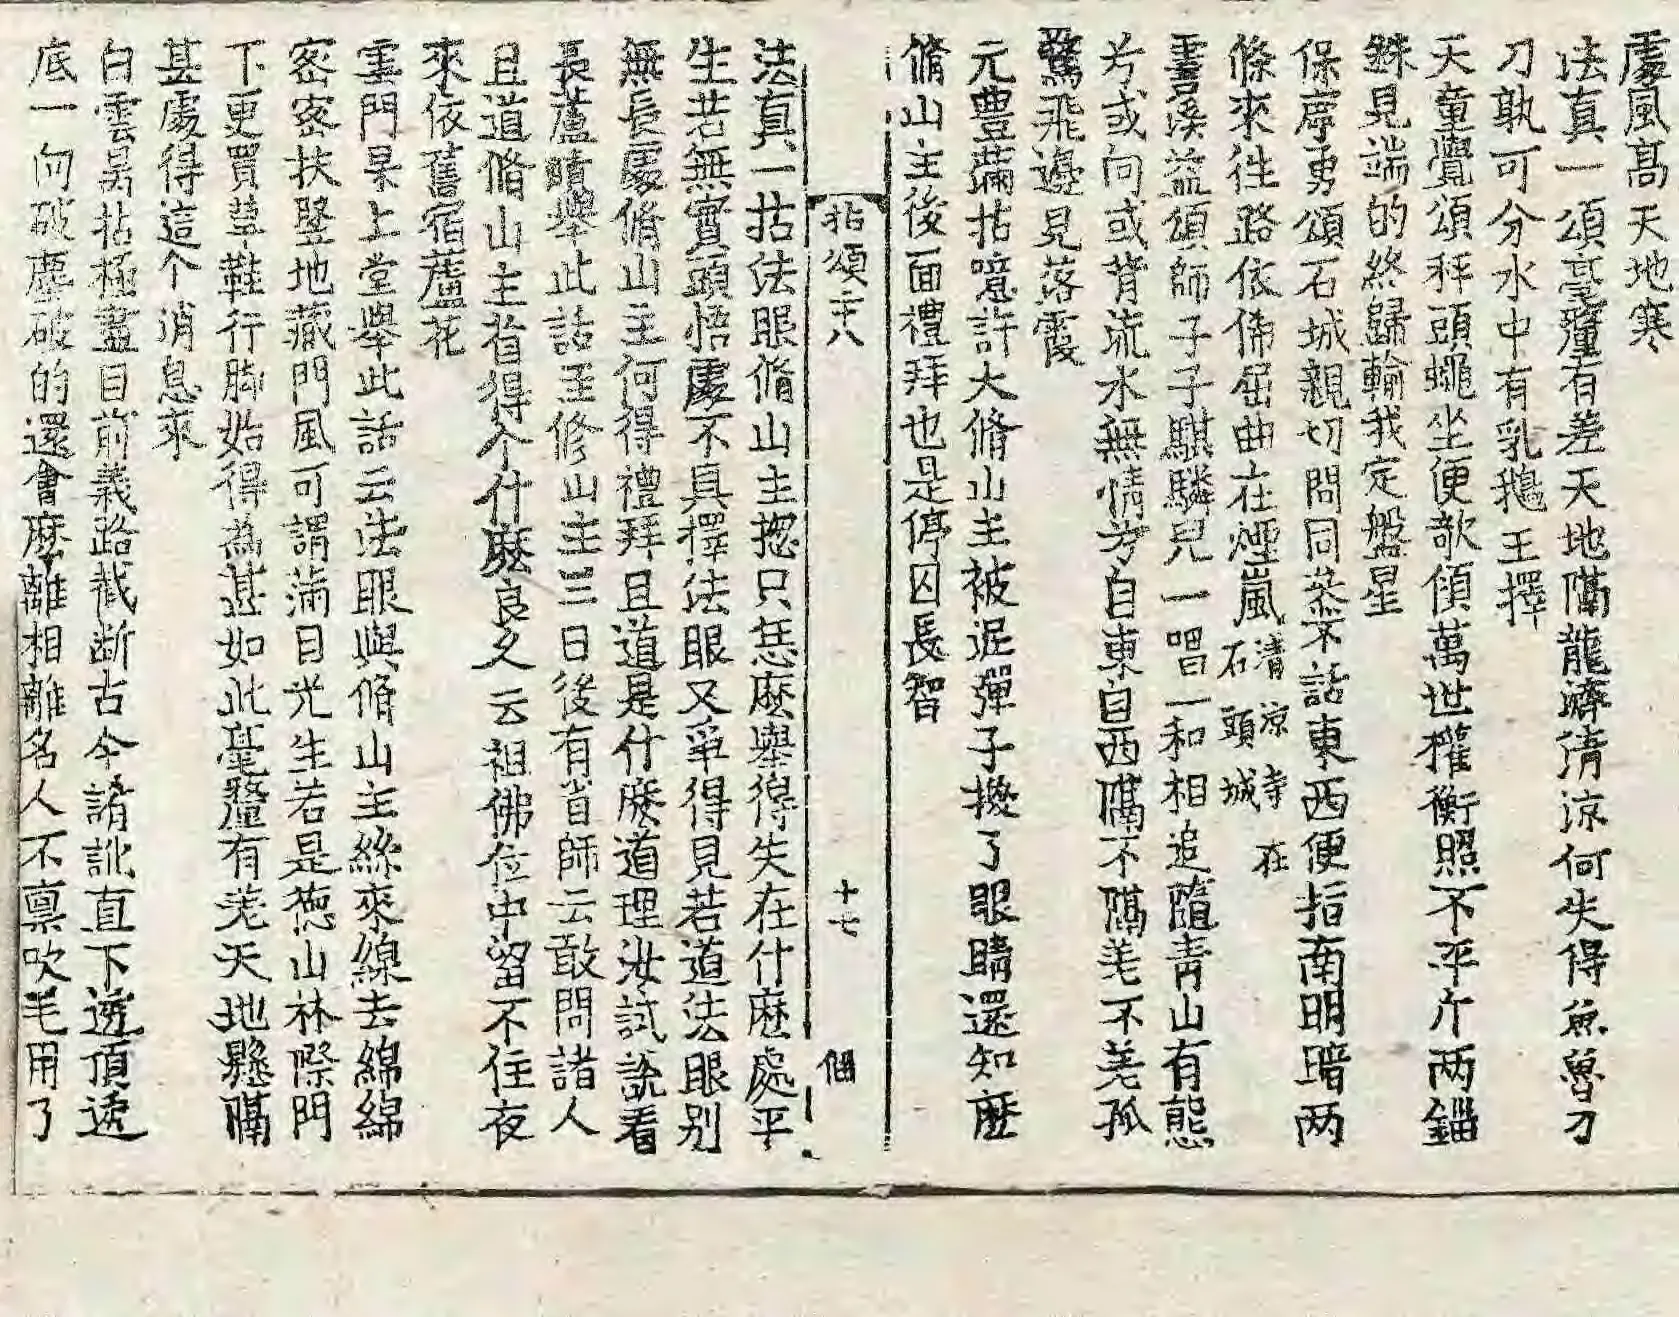 處風高天地寒
法真一頌毫釐有差天地隔龍濟清涼何失得魚魯刀
刀孰可分水中有乳鵝王擇
天童覺頌秤頭蠅坐便欹傾萬世權衡照不平斤两錙
銖見端的終歸輸我定盤星
保寧勇頌石城親切問同叅不話東西便指南明暗两
條來往路依俙屈曲在煙嵐清涼寺在石頭城
雲溪益頌師子子麒麟兒一唱一和相追隨青山有態
兮或向或背流水無情兮自東自西隔不隔差不差孤
鶩飛邊見落霞
元豊滿拈噫許大脩山主被泥彈子換了眼睛還知麽
脩山主後面禮拜也是停囚長智
拈頌二十八 十七
法真一拈法眼脩山主揔只恁麽舉得失在什麽處平
生若無實頭悟處不具擇法眼又爭得見若道法眼别
無長處脩山主何得禮拜且道是什麽道理汝試說看
長蘆賾舉此話至修山主三日後有省師云敢問諸人
且道脩山主省得个什麽良久云祖佛位中留不住夜
來依舊宿蘆花
雲門杲上堂舉此話云法眼與脩山主絲來線去綿綿
密密扶竪地藏門風可謂滿目光生若是德山林際門
下更買草鞋行脚始得為甚如此毫釐有差天地懸隔
甚處得這个消息來
白雲昺拈極盡目前義路截断古今誵訛直下透頂透
底一向破塵破的還會麽離相離名人不禀吹毛用了